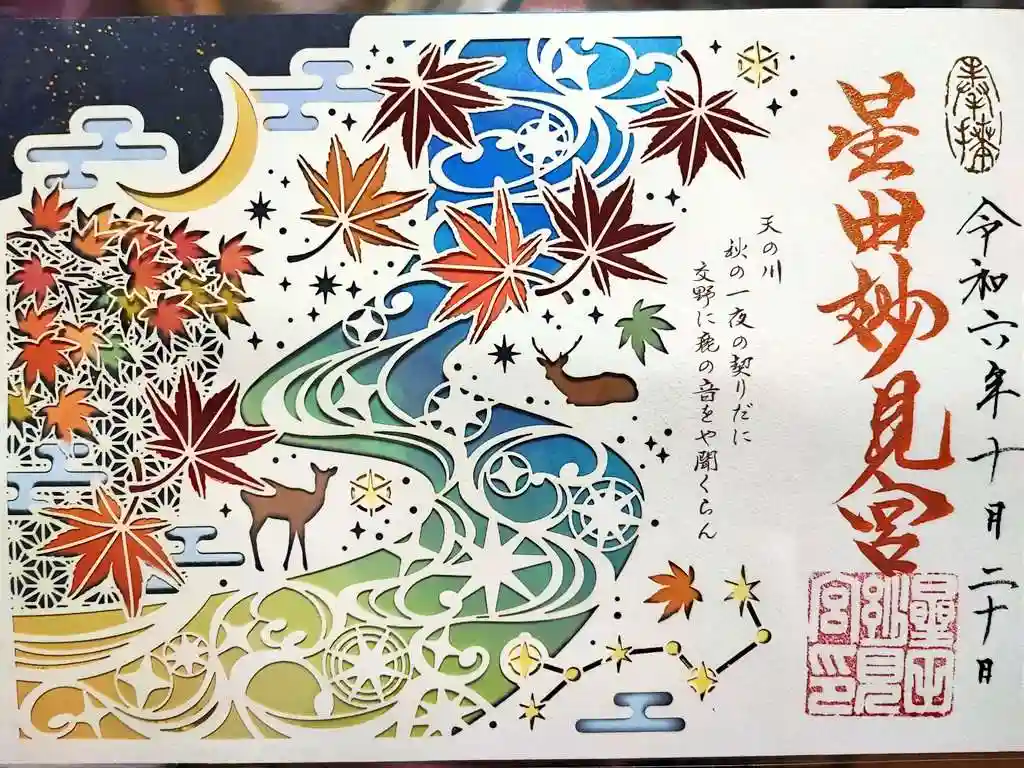 奉拝
令和六年十月二十日
星田妙見宮
天の川
秋の一夜の契りだに
交野に鹿の音をや聞くらん
星田
妙見
宮印